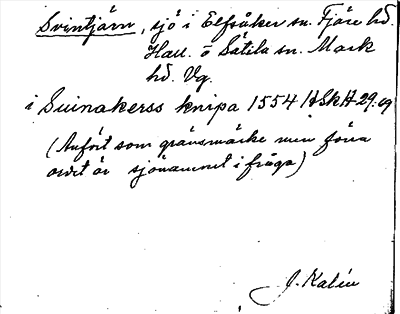 Svintjärn, sjö i Elfsåker sn. Fjäre hd.
Hall. o Sätila sn. Mark
hd. Vg.
i Suinakerss knipa 1554 HSkH 29:
(Anfört som gränsmärke men förra
ordet är sjönamnet i fråga)
J. Kalén